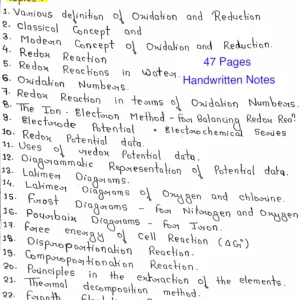 Topics :
1. Various definition of Oxidation and Reduction
2. Classical Concept and
3. Modern Concept of Oxidation and Reduction.
4. Redox Reaction
5. Redox Reactions in Water.
6. Oxidation Numbers.
7. Redox Reaction in terms of Oxidation Numbers.
8. The Ion-Electron Method - for Balancing Redox Reaⁿ
9. Electrode Potential • Electrochemical Series
10. Redox Potential data.
11. Uses of redox Potential data.
12. Diagrammatic Representation of Potential data.
13. Latimer Diagrams.
14. Latimer Diagrams of Oxygen and chlorine.
15. Frost Diagrams - for Nitrogen and Oxygen
16. Pourbaix Diagrams - for Iron.
17. Free energy of Cell Reaction (ΔG°)
18. Disproportionation Reaction.
19. Comproportionation Reaction.
20. Principles in the extraction of the elements.
21. Thermal decomposition method.
22.
47 Pages
Handwritten Notes